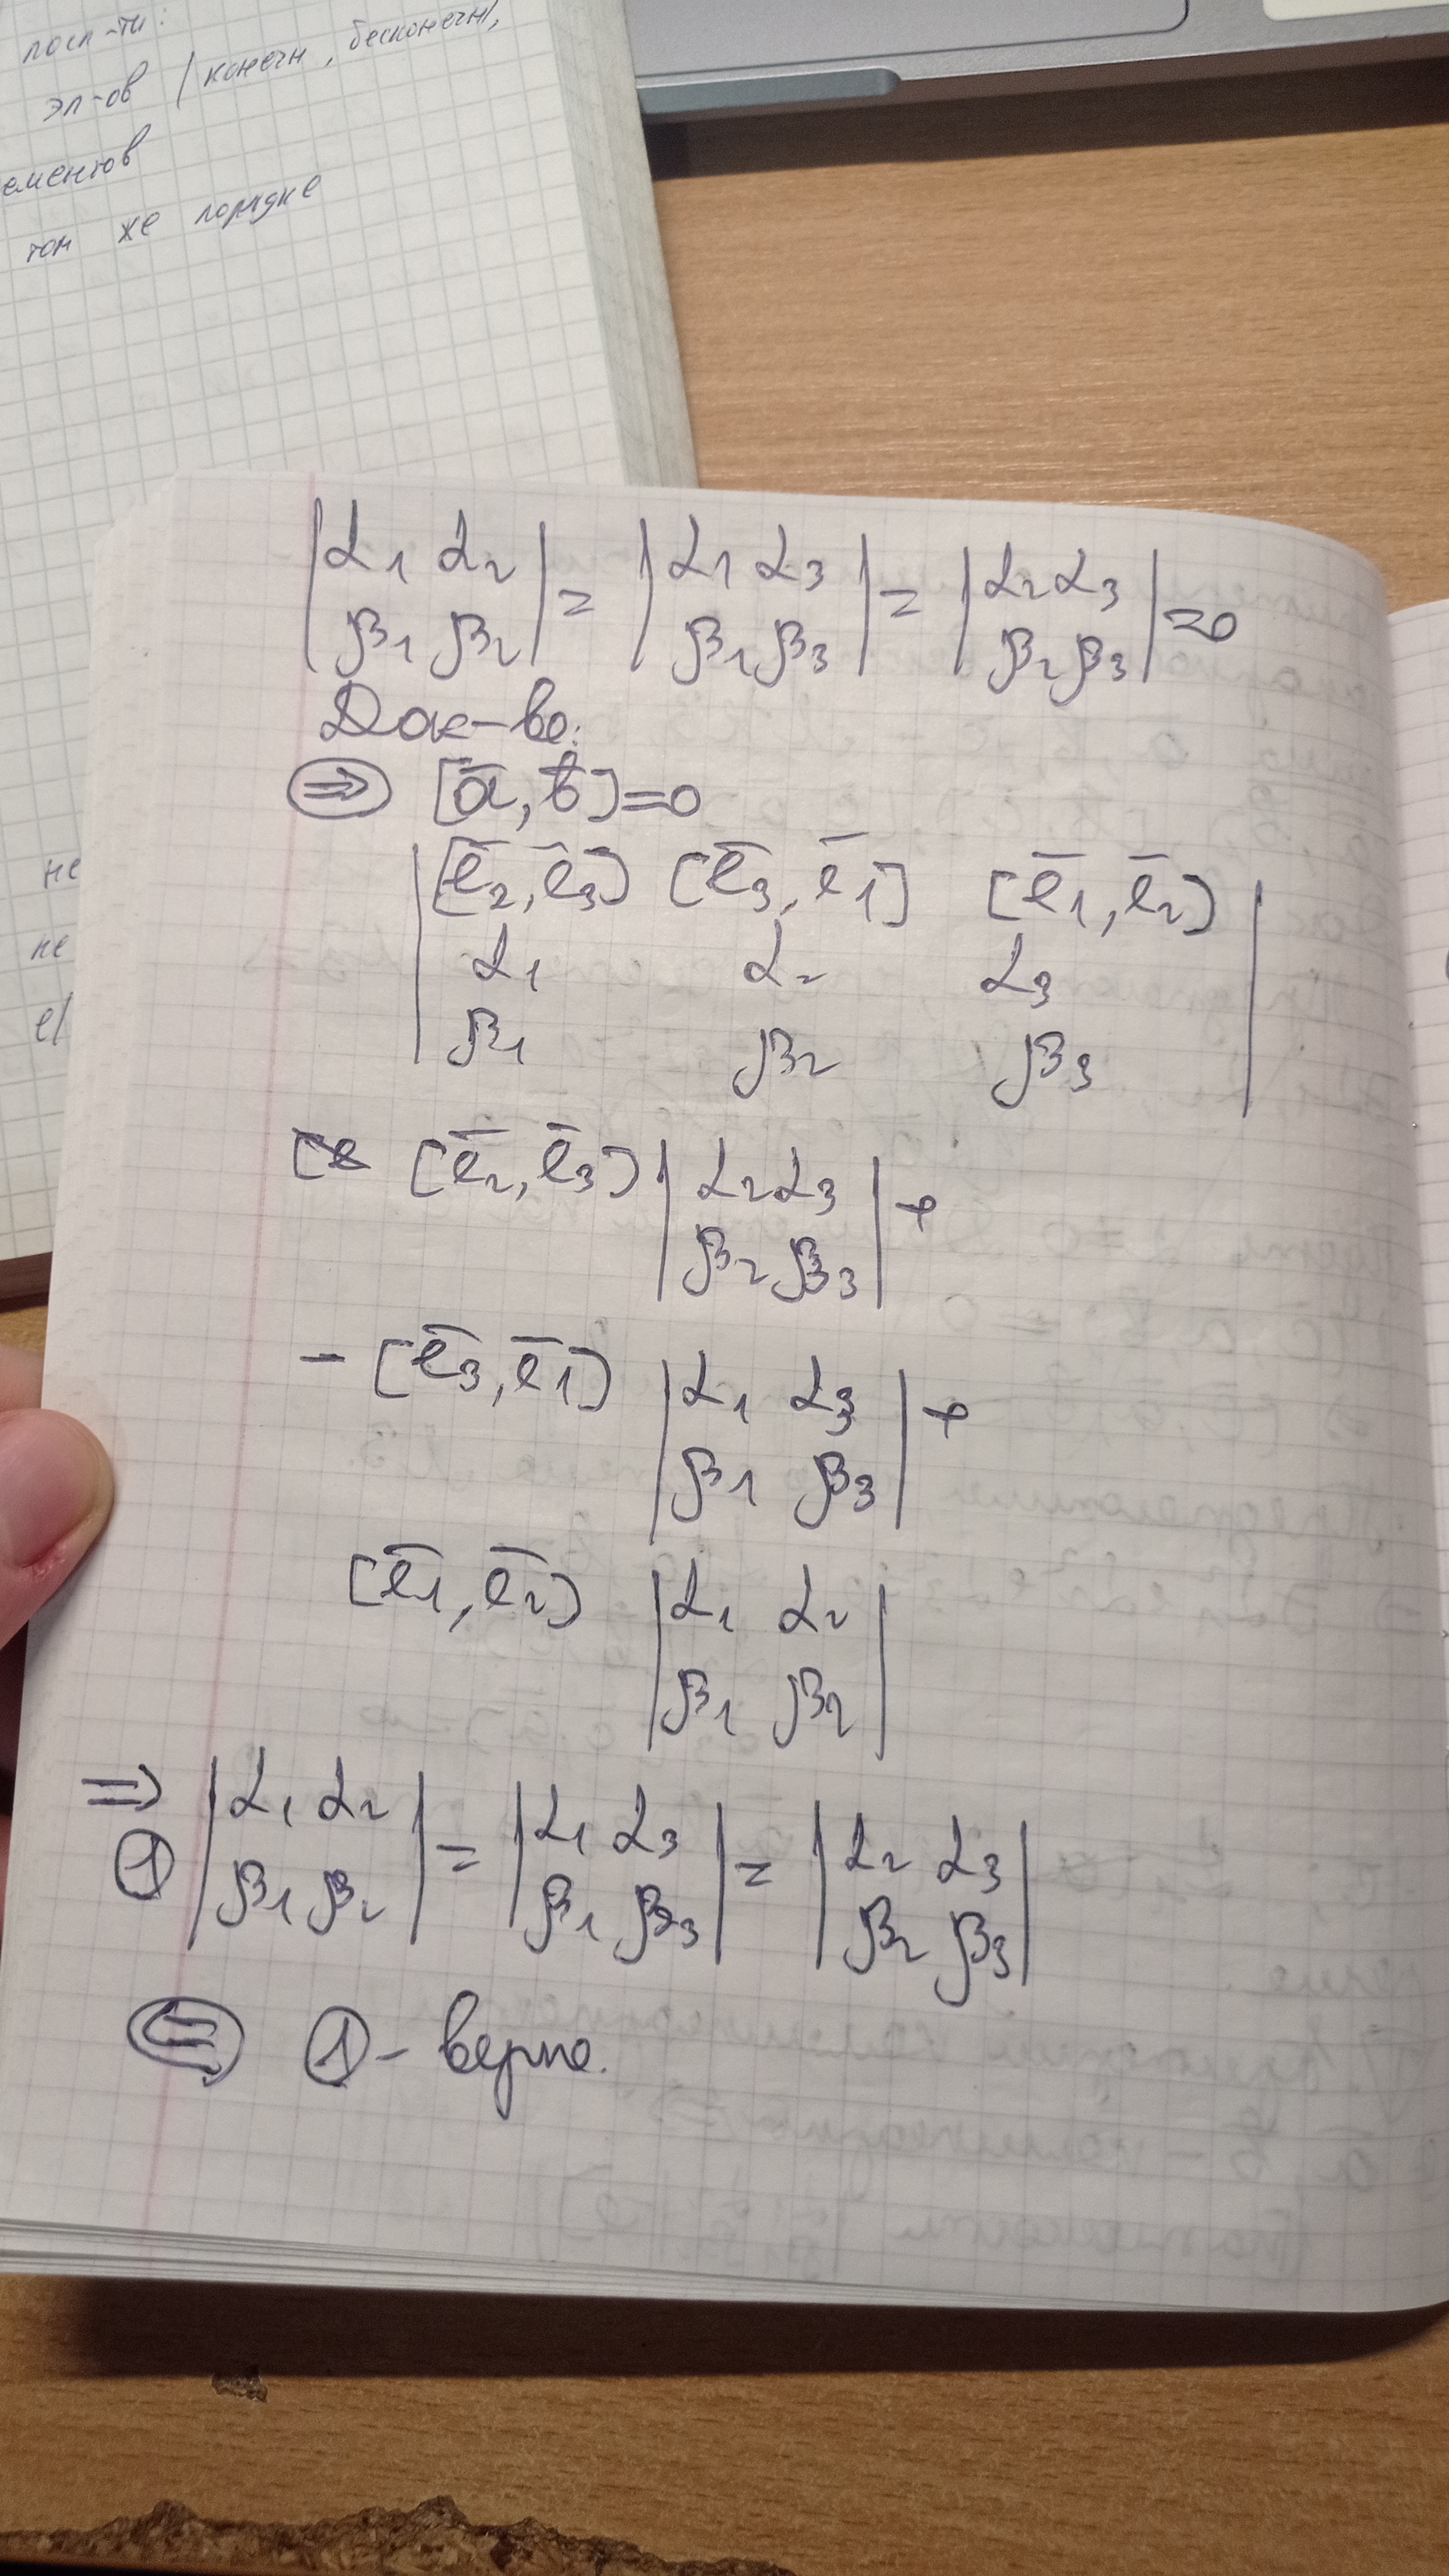 посл-ти:
эл-ов (конечн, бесконечн,
ементов
том же порядке
|α1 α2| = |α1 α3| = |α2 α3| = 0
|β1 β2| |β1 β3| |β2 β3|
Док-во:
⇒ [a̅, b̅] = 0
|[e̅2, e̅3] [e̅3, e̅1] [e̅1, e̅2]|
|α1 α2 α3|
не
|β1 β2 β3|
не
е/
[e̅2, e̅3] |α2 α3| +
|β2 β3|
- [e̅3, e̅1] |α1 α3| +
|β1 β3|
[e̅1, e̅2] |α1 α2|
|β1 β2|
⇒ |α1 α2| = |α1 α3| = |α2 α3|
① |β1 β2| |β1 β3| |β2 β3|
⇐ ① - верно.